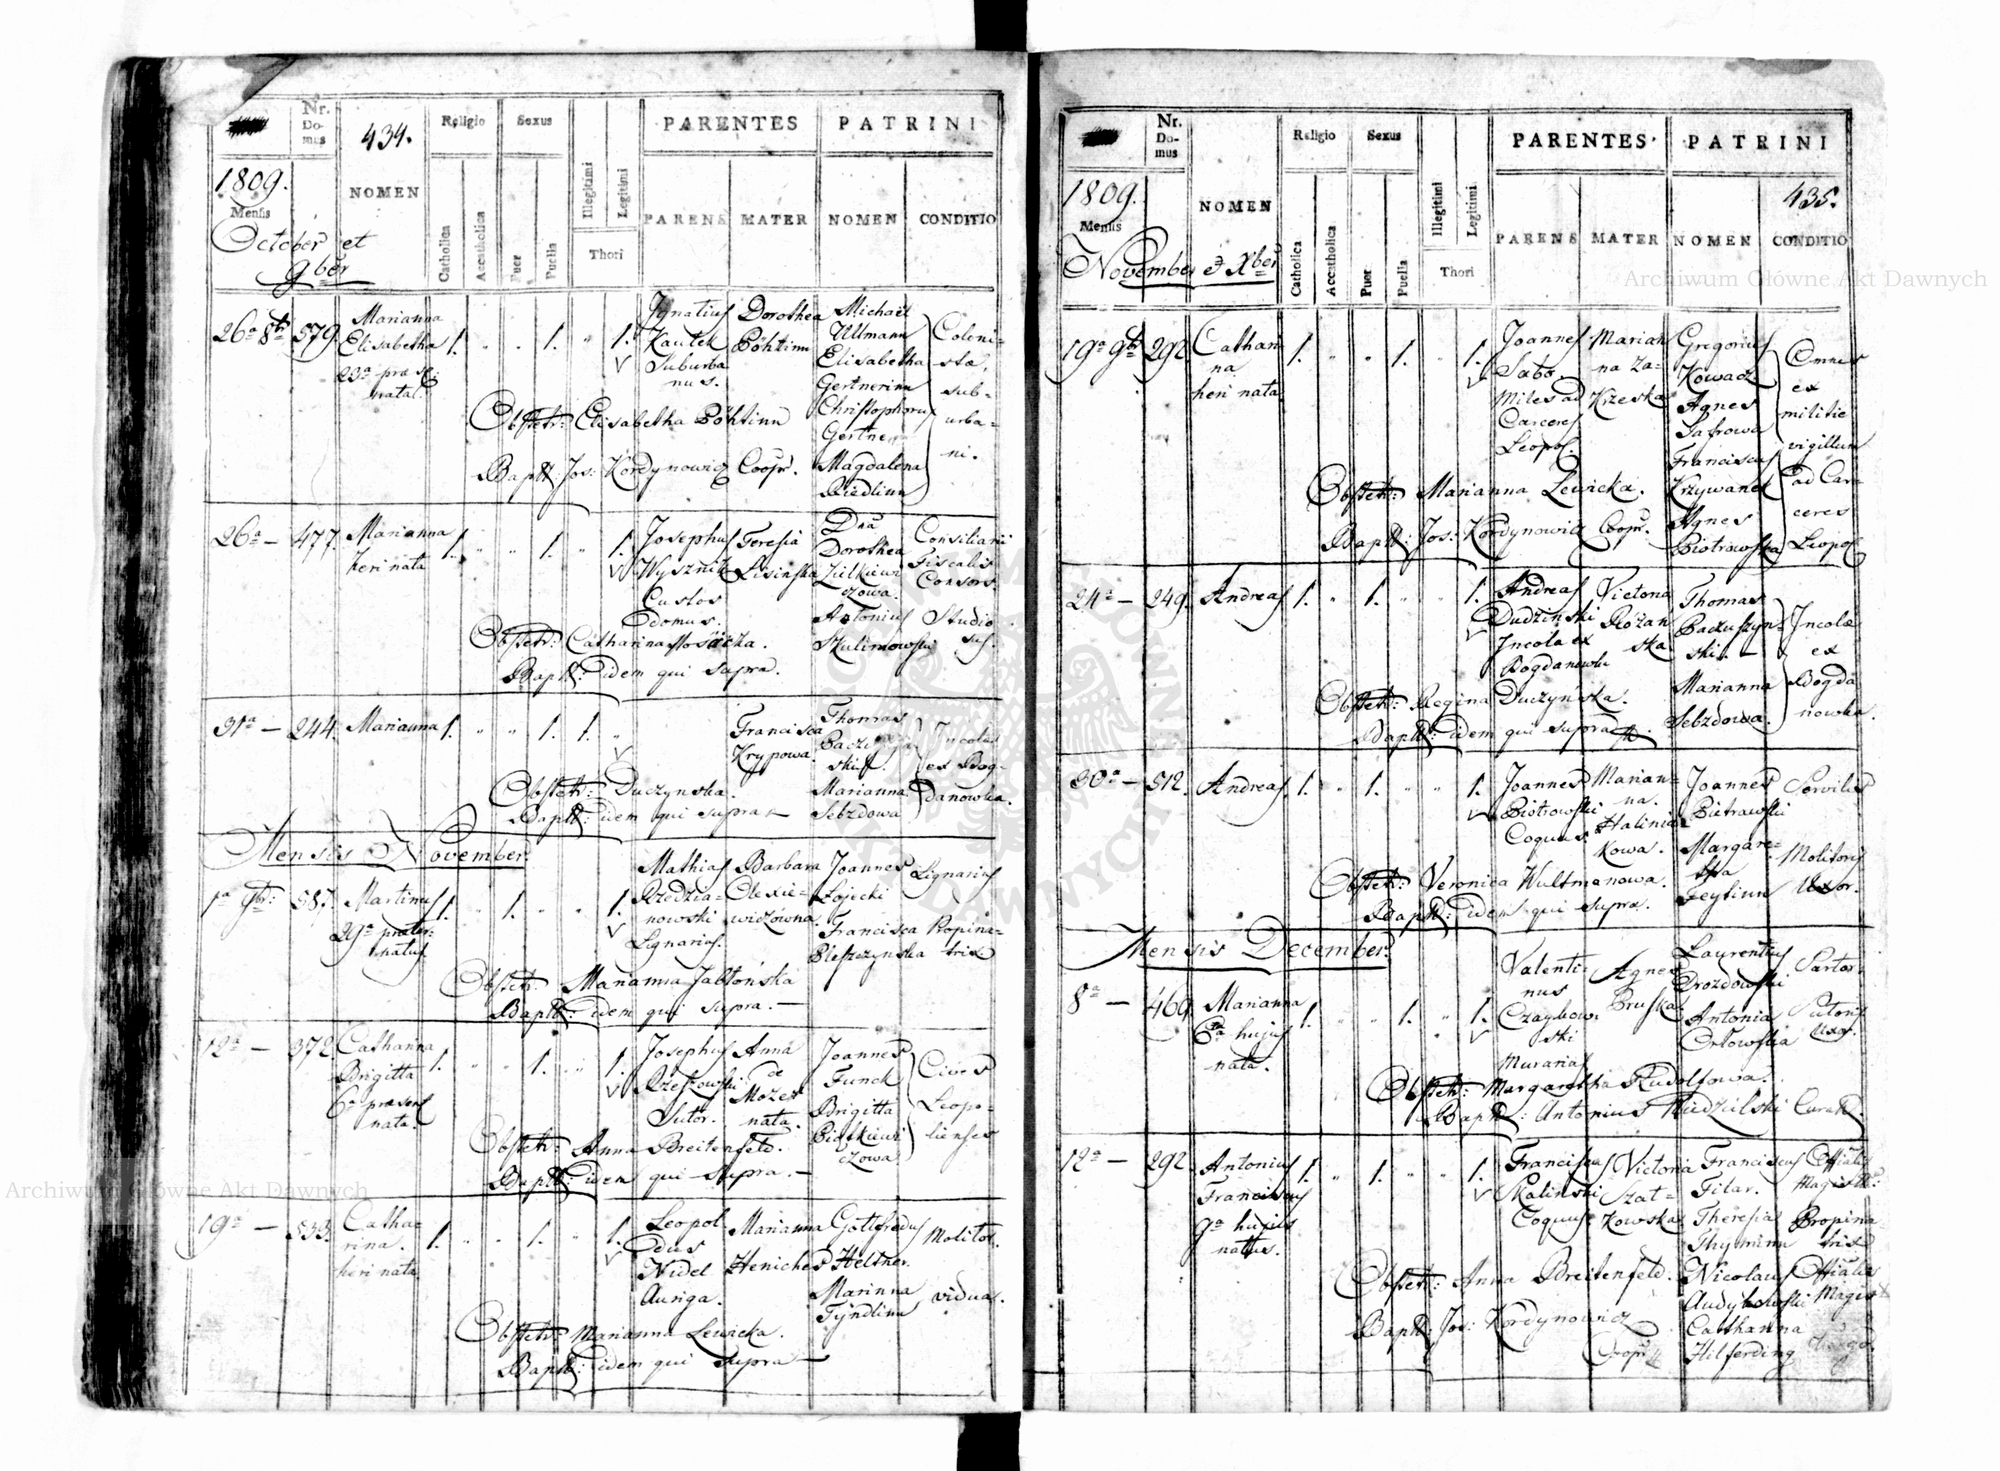 434.
Nr. Domus
NOMEN
Religio
Sexus
Catholica
Accatholica
Puer
Puella
Illegitimi
Legitimi
Thori
PARENTES
PATRINI
PARENS
MATER
NOMEN
CONDITIO
1809.
Mensis
October et
9ber
26a 8br
579.
Marianna
Elisabetha
23a præs:
nata.
1.
1.
1.
Ignatius
Kautek
Suburba
nus.
Dorothea
Böhtinn
Michael
Ullmann
Elisabetha
Gertnerinn
Christophorus
Gertner
Magdalena
Riedlinn
Coloni-
stæ,
sub-
urba-
ni.
Obstetr: Elisabetha Böhtinn
Bapt: Jos: Kordynowicz Coopr.
26a —
477.
Marianna
heri nata
1.
1.
1.
Josephus
Wysznik
Custos
domus.
Teresia
Lisinska
Dna
Dorothea
Zielkiewi
czowa.
Antonius
Skulimowski
Consiliarii
Fiscalis
Consors.
Studio
sus.
Obstetr: Catharina Mosäcka.
Bapt: idem qui supra.
31a —
244.
Marianna
1.
1.
1.
Francisca
Krypowa.
Thomas
Marianna
Sebzdowa
Incolæ
ex Bog-
danowka.
Obstetr: Duczynska.
Bapt: idem qui supra —
Mensis November
1a 9br:
587.
Martinus
29a præter:
natus
1.
1.
1.
Mathias
Rzedzia-
nowski
Lignarius.
Barbara
Olexie-
wiczowna
Joannes
Łojecki
Francisca
Pleszczynska
Lignarius
Propina-
trix
Obstetr: Marianna Jabłońska
Bapt: idem qui supra. —
12a —
372.
Catharina
Brigitta
6a præsent
nata.
1.
1.
1.
Josephus
Rzeszowski
Sutor.
Anna
de
Mozer
nata.
Joannes
Funck
Brigitta
Piatkiewi
czowa
Cives
Leopo-
lienses
Obstetr: Anna Breitenfeld.
Bapt: idem qui supra. —
19a —
533.
Catha-
rina.
heri nata
1.
1.
1.
Leopol
dus
Nidel
Auriga.
Marianna
Heniches
Gottfredus
Heltner.
Marinna
Tyndlinn
Molitor.
vidua.
Obstetr: Marianna Lewicka.
Bapt: idem qui supra —
Nr. Domus
NOMEN
Religio
Sexus
Catholica
Accatholica
Puer
Puella
Illegitimi
Legitimi
Thori
PARENTES
PATRINI
PARENS
MATER
NOMEN
CONDITIO
435.
1809.
Mensis
November et Xber
19a 9br
292.
Cathari
na
heri nata
1.
1.
1.
Joannes
Sabo.
Miles ad
Carceres
Leopol.
Marian
na Za-
Krzeska
Gregorius
Kowacz
Agnes
Safrowa
Franciscus
Krzywanek
Agnes
Piotrowska
Omnes
ex
militie
vigillum
ad Car-
ceres
Leopol
Obstetr: Marianna Lewicka.
Bapt: Jos: Kordynowicz Coopr.
24a —
249.
Andreas
1.
1.
1.
Andreas
Dudzinski
Incola ex
Bogdanowka
Victoria
Rozan
ska
Thomas
Baczuszyn-
ski. —
Marianna
Sebzdowa.
Incolæ
ex
Bogda
nowka.
Obstetr: Regina Duczyńska.
Bapt: idem qui supra
30a —
512.
Andreas
1.
1.
1.
Joannes
Piotrowski
Coquus
Marian-
na.
Halinia
kowa.
Joannes
Pietrawski
Margare-
tha
Zeytinn
Servilis
Molitoris
Uxor.
Obstetr: Veronica Wultmanowa.
Bapt: idem qui supra.
Mensis December.
8a —
469.
Marianna
6ta hujus
nata.
1.
1.
1.
Valenti-
nus
Czaykow-
ski
Murarius
Agnes
Pruska.
Laurentius
Drozdowski
Antonia
Orłowska
Sartor.
Sutoris
Uxor.
Obstetr: Margaretha Rudolfowa.
Bapt: Antonius Curat.
12a —
292.
Antonius
Franciscus
9a hujus
natus.
1.
1.
1.
Franciscus
Skalinski
Coquus
Victoria
Szat-
kowska
Franciscus
Fitar.
Theresia
Thyminn
Nicolaus
Catharina
Hilferding
Offialis
Magistr:
Propina
trix
Offialis
Magist
Obstetr: Anna Breitenfeld.
Bapt: Jos: Kordynowicz
Coopr
Archiwum Główne Akt Dawnych
Archiwum Główne Akt Dawnych